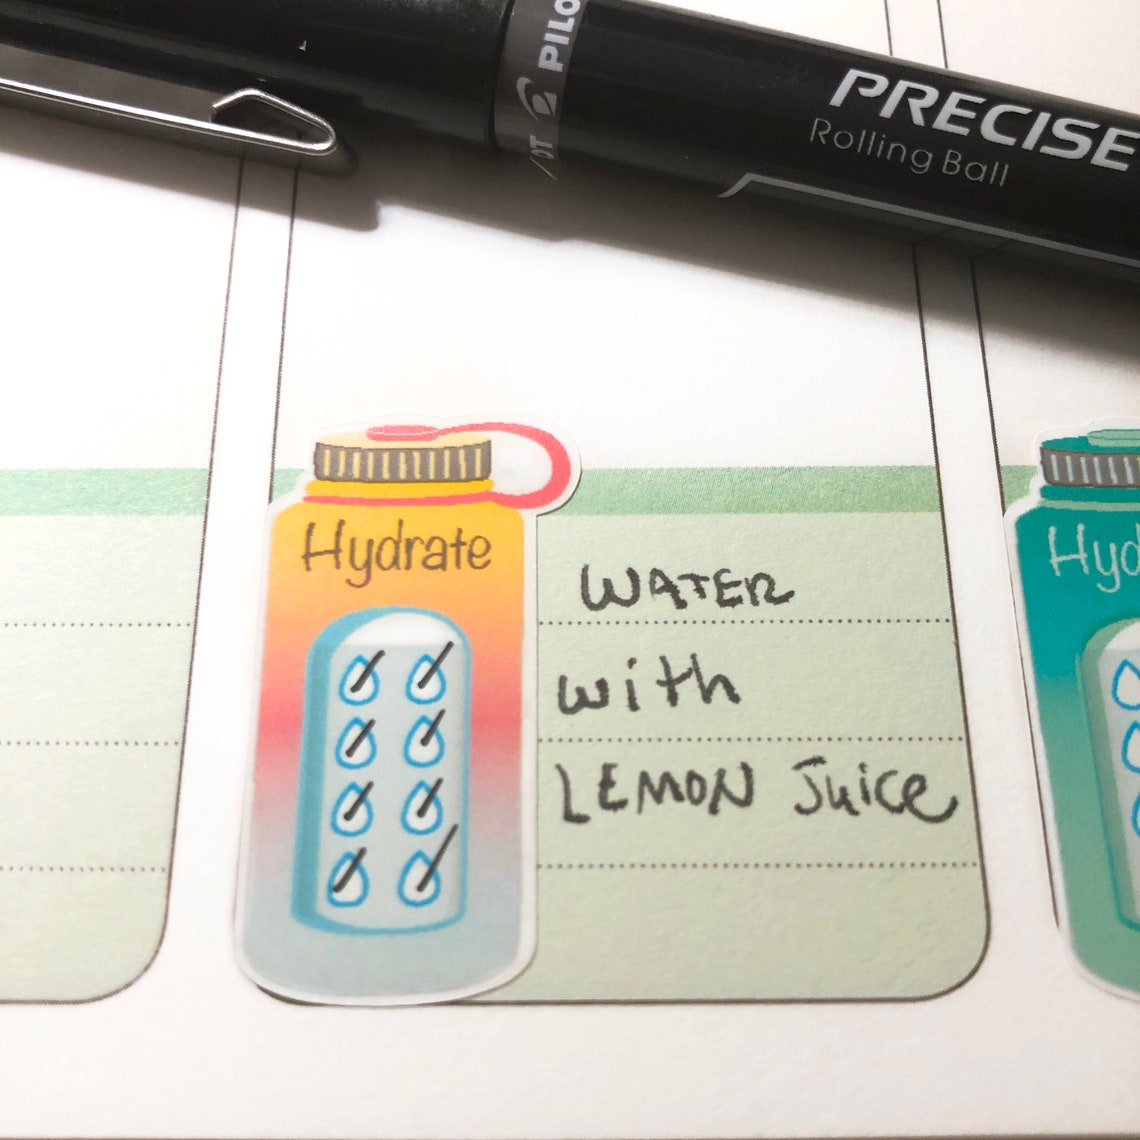 PILO
OT
PRECISE
Rolling Ball
Hydrate
WATER
with
LEMON Juice
Hyd